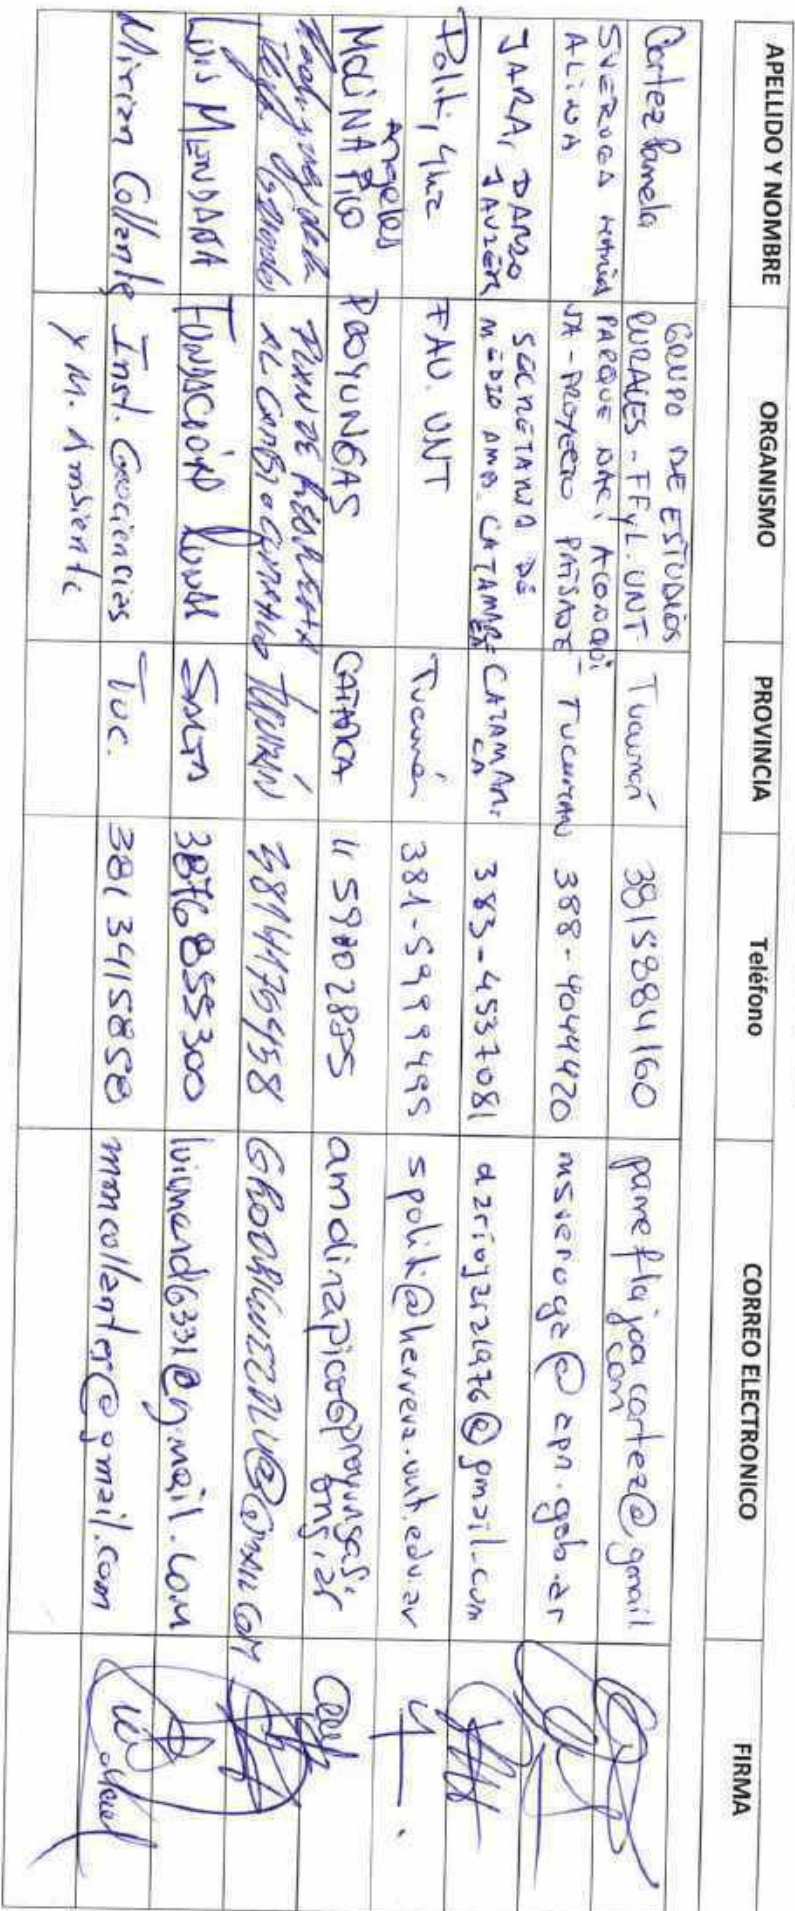 APELLIDO Y NOMBRE ORGANISMO PROVINCIA Teléfono CORREO ELECTRONICO FIRMA
Cortez Pamela GRUPO DE ESTUDIOS RURALES - FFyL. UNT Tucumán 3815884160 pameflajoacortez@gmail.com
SVEROGA MARIA ALINA PARQUE NAC. ACONQUIJA - PROYECTO PAISAJE TUCUMAN 388-4044420 msveroga@apn.gob.ar
JARA, DARIO JAVIER SECRETARIA DE MEDIO AMB. CATAMARCA CATAMARCA 383-4537081 dariojara1976@gmail.com
Politi, FAU. UNT Tucumán 381-5999495 spoliti@herrera.unt.edu.ar
MOLINA PICO Angeles PROYUNGAS 11 59802885 amolinapico@proyungas.org.ar
Rodriguez PLAN DE AL CAMBIO CLIMATICO TUCUMÁN
LUIS MENDAÑA FUNDACIÓN SALTA 3876855300 luismend6331@gmail.com
Mirian Collante Inst. Geociencias y M. Ambiente Tuc. 381 3415858 mmcollantes@gmail.com